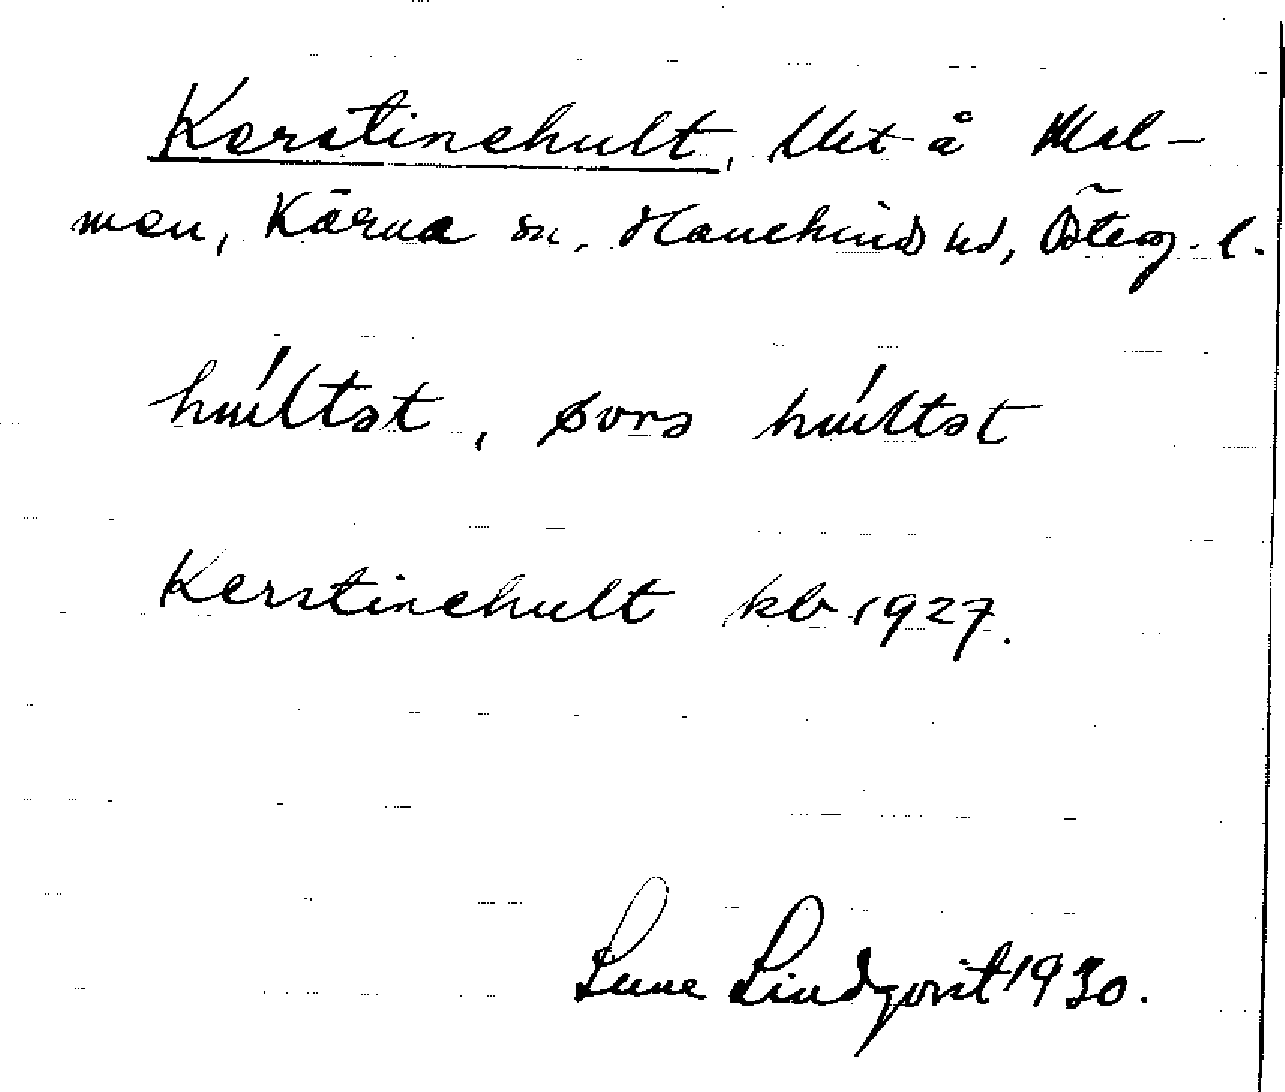 Kerstinehult, lht å Mal-
men, Kärna sn, Hanekinds hd, Österg. l.
hultət, hultət
Kerstinehult kb 1927.
Sune Lindqvist 1930.